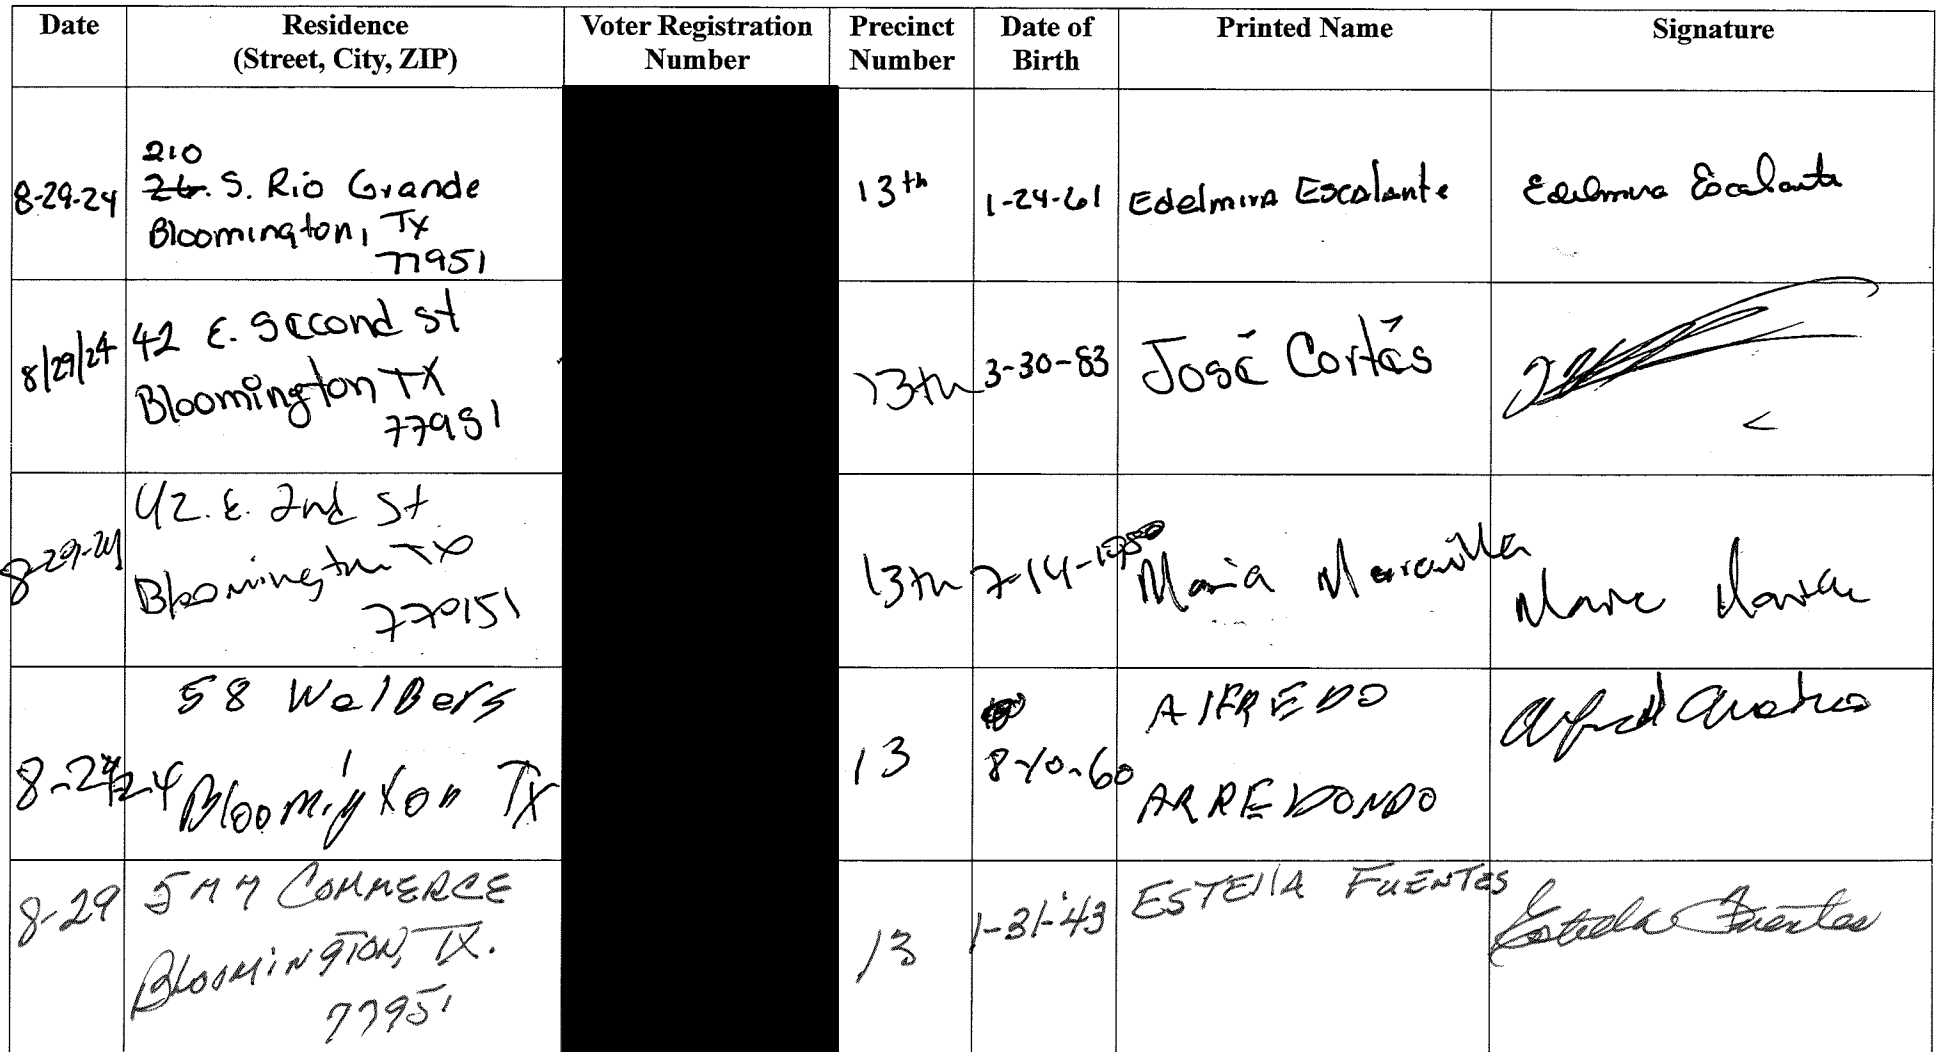 Date
Residence
(Street, City, ZIP)
Voter Registration
Number
Precinct
Number
Date of
Birth
Printed Name
Signature
8-29-24
210
26. S. Rio Grande
Bloomington, TX
77951
13th
1-24-61
Edelmira Escalante
Edelmira Escalante
8/29/24
42 E. Second St
Bloomington TX
77951
13th
3-30-83
José Cortés
8-29-24
42. E. 2nd St.
Bloomington TX
770151
13th
7-14-1950
Maria Maravilla
Maria
58 Walbers
8-29-24
Bloomington Tx
13
8-10-60
AlFREDO
ARREDONDO
8-29
577 COMMERCE
BLOOMINGTON, TX.
77951
13
1-31-43
ESTEllA FUENTES
Estella Fuentes